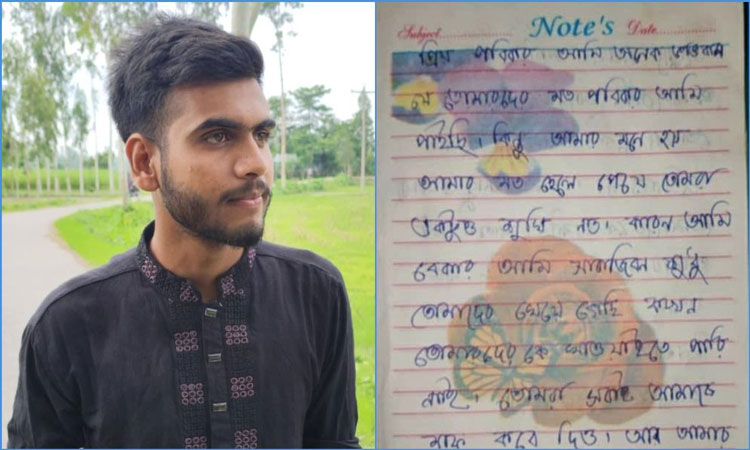 Subject................ Note's Date................
প্রিয় পরিবার আমি অনেক ভাগ্যবান
যে তোমাদের মত পরিবার আমি
পাইছি। কিন্তু আমার মনে হয়
আমার মত ছেলে পেয়ে তোমরা
একটুও সুখি নও। কারন আমি
বেকার আমি সারাজিবন শুধু
তোমাদের খেয়ে গেছি কখন
তোমাদের কে খাওয়াইতে পারি
নাই। তোমরা সবাই আমাকে
মাফ করে দিও। আর আমার